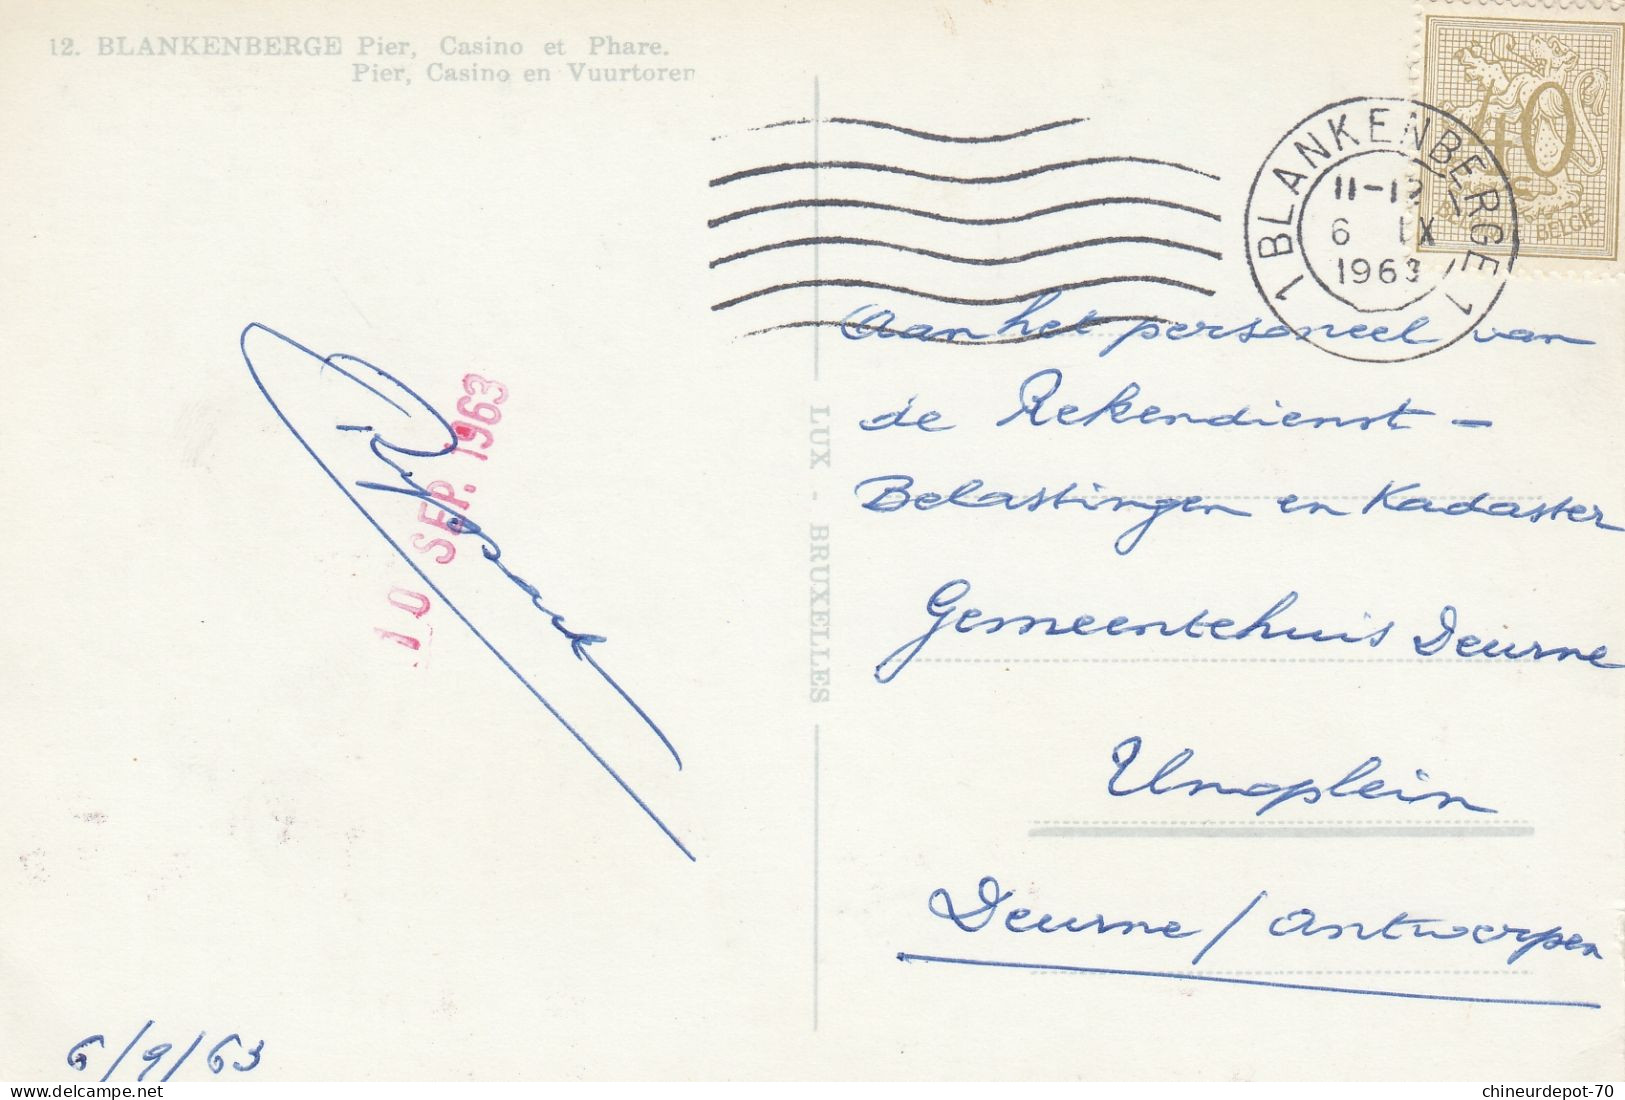 12. BLANKENBERGE Pier, Casino et Phare.
Pier, Casino en Vuurtoren
1 BLANKENBERGE 1
11-12
6 IX
1963
40
BELGIE
Aan het personeel van
de Rekendienst -
Belastingen en Kadaster
Gemeentehuis Deurne
Unoplein
Deurne / Antwerpen
LUX - BRUXELLES
10 SEP. 1963
6/9/63
chineurdepot-70